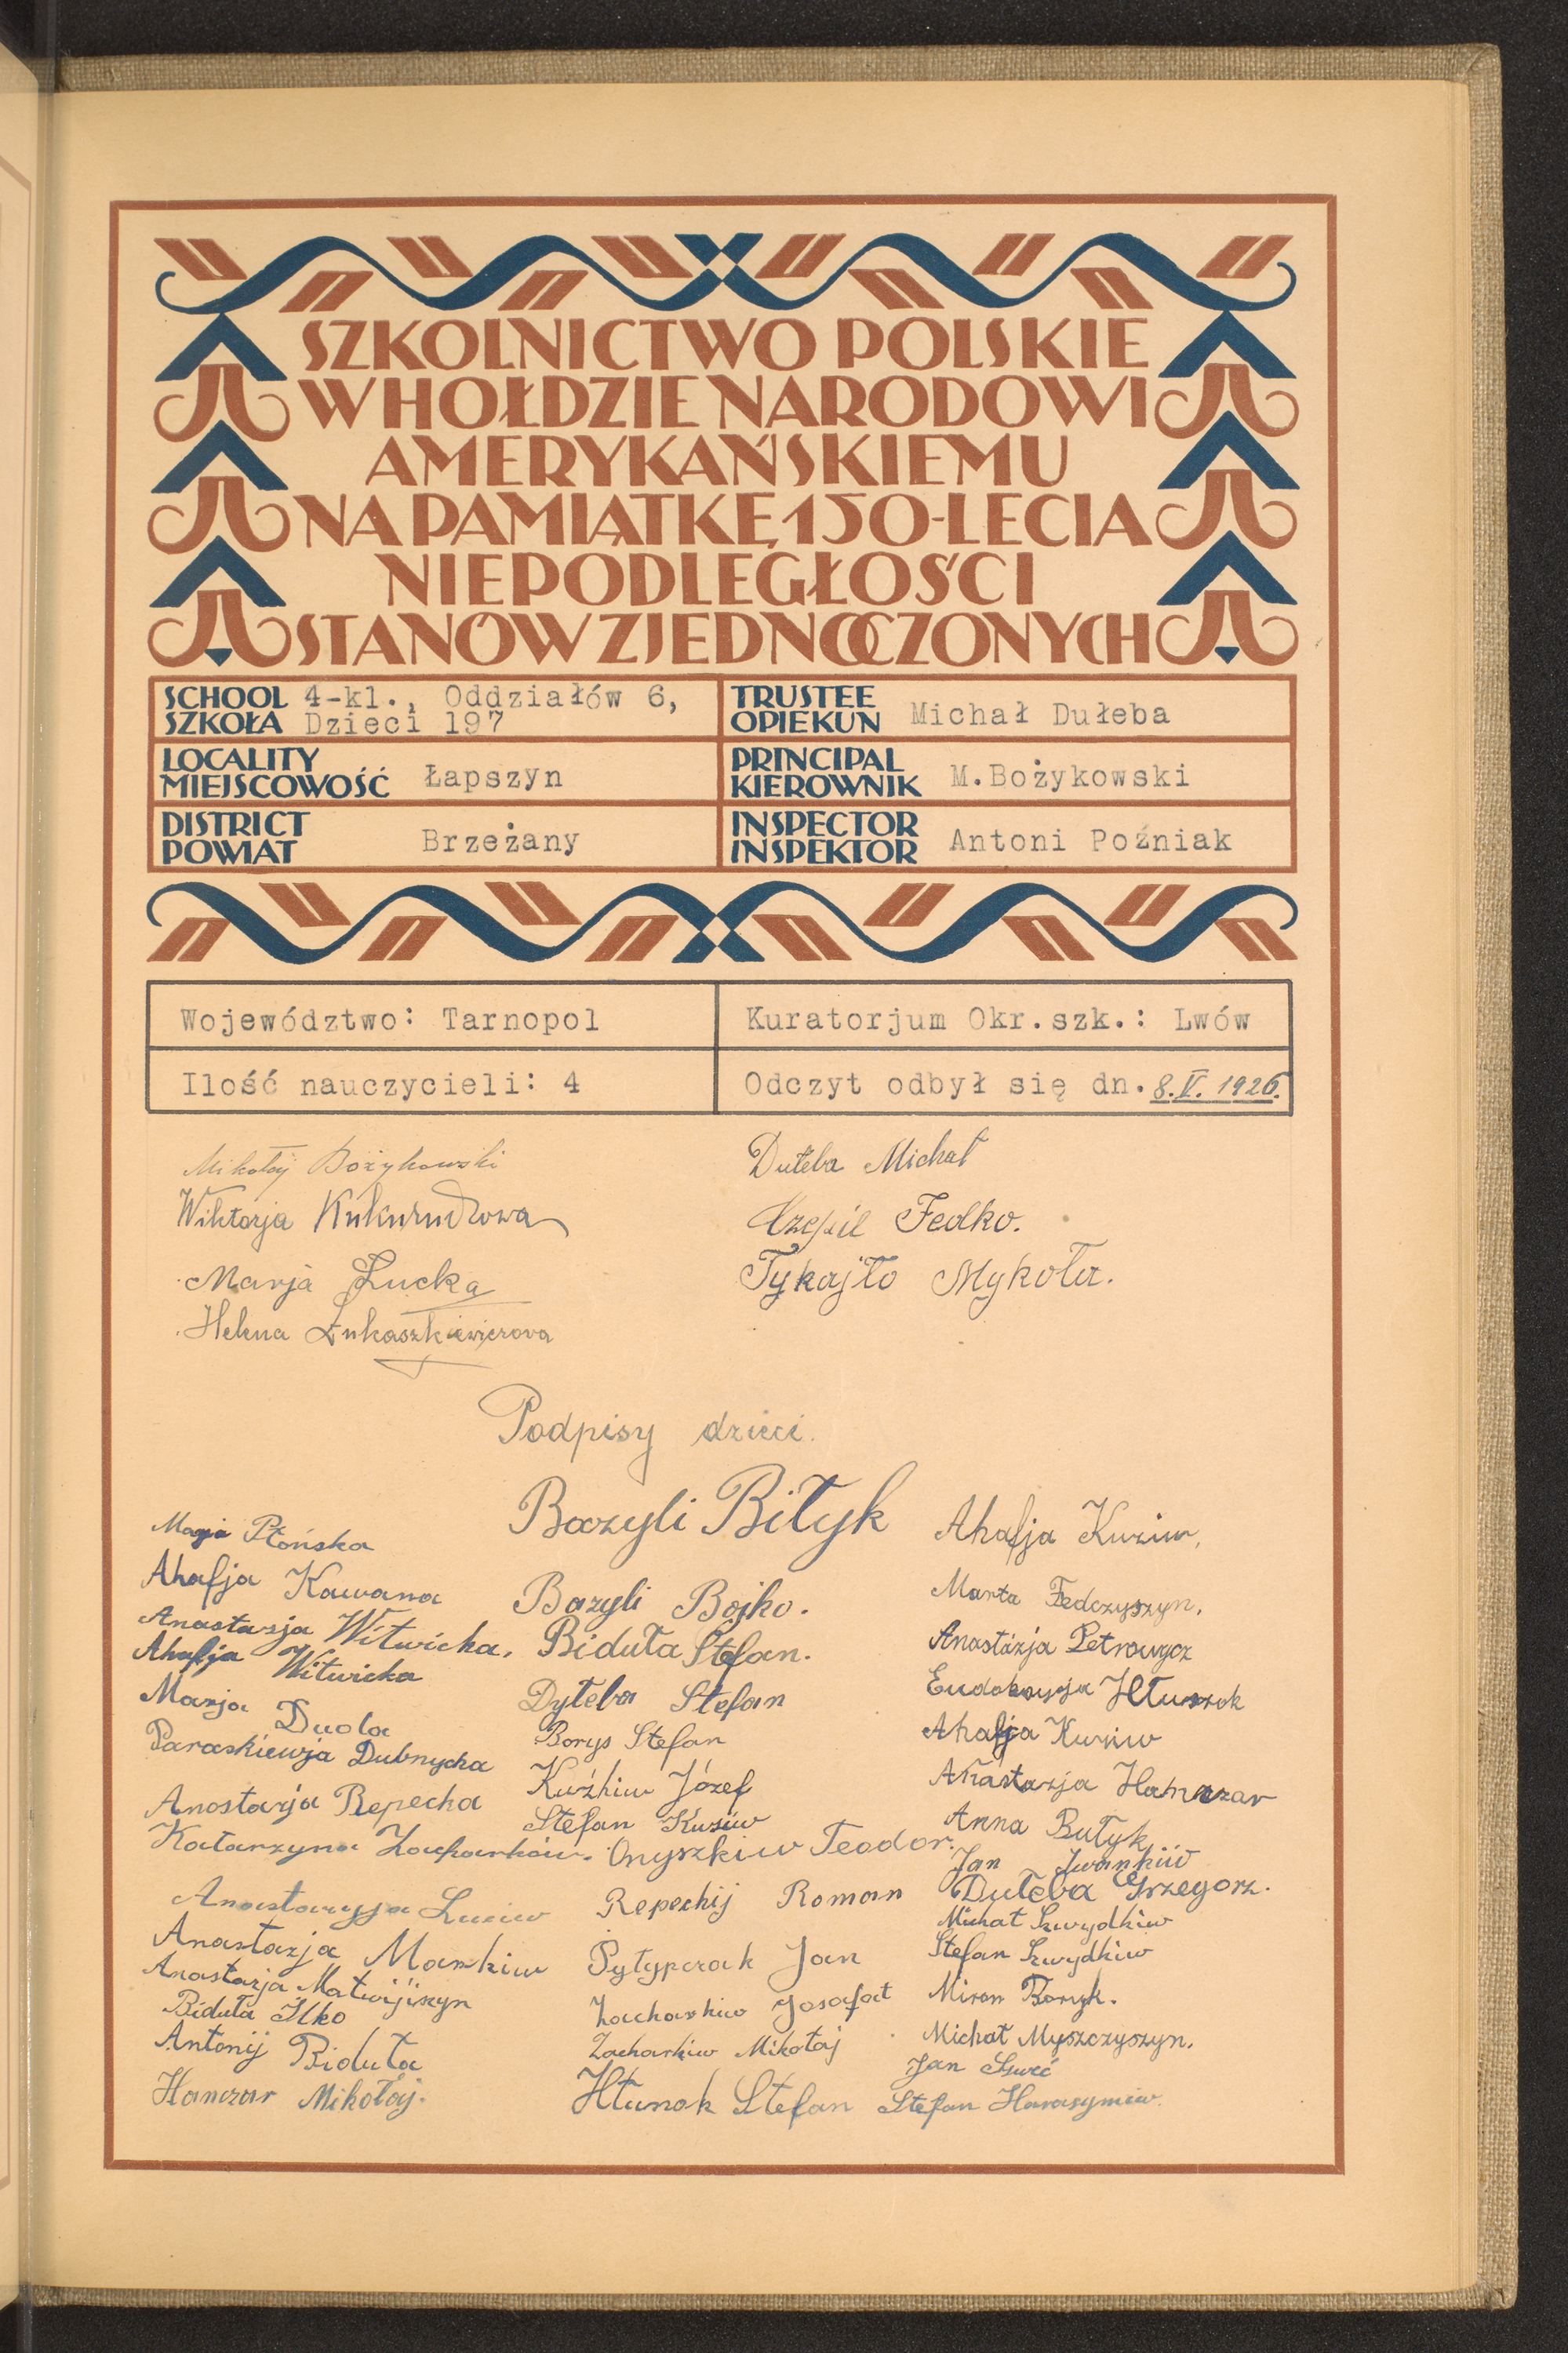 SZKOLNICTWO POLSKIE
W HOŁDZIE NARODOWI
AMERYKAŃSKIEMU
NA PAMIĄTKĘ 150-LECIA
NIEPODLEGŁOŚCI
STANÓW ZJEDNOCZONYCH
SCHOOL
SZKOŁA
4-kl., Oddziałów 6,
Dzieci 197
TRUSTEE
OPIEKUN
Michał Dułeba
LOCALITY
MIEJSCOWOŚĆ
Łapszyn
PRINCIPAL
KIEROWNIK
M.Bożykowski
DISTRICT
POWIAT
Brzeżany
INSPECTOR
INSPEKTOR
Antoni Poźniak
Województwo: Tarnopol
Kuratorjum Okr.szk.: Lwów
Ilość nauczycieli: 4
Odczyt odbył się dn. 8.V.1926.
Mikołaj Bożykowski
Wiktorja Kukurudzowa
Marja Łucka
Helena Łukaszkiewiczowa
Dułeba Michał
Fedko.
Tykajło Mykoła.
Podpisy dzieci.
Marja Płońska
Ahafja Kawana
Anastazja Witwicka.
Ahafja Witwicka
Marja Duola
Paraskiewja Dubnycka
Anastazja Repecka
Katarzyna Zacharków.
Anastazyja Luciw
Anastazja Markiw
Anastazja Matwijiszyn
Biduła Ilko
Antonij Biduła
Hanczar Mikołaj.
Bazyli Biłyk
Bazyli Bojko.
Biduła Stefan.
Dyłeba Stefan
Borys Stefan
Kuźkiw Józef
Stefan Kuziw
Onyszkiw Teodor.
Repeckij Roman
Pyłypczak Jan
Zacharkiw Josafat
Zacharkiw Mikołaj
Hłunok Stefan
Ahafja Kuziw,
Marta Fedczyszyn.
Anastazja Petrowycz
Eudoksyja
Ahafja Kuziw
Anastazja Hanczar
Anna Bułyk
Jan Iwankiw
Dułeba Grzegorz.
Michał Szwydkiw
Stefan Szwydkiw
Miron Boryk.
Michał Myszczyszyn.
Jan
Stefan Harasymiw